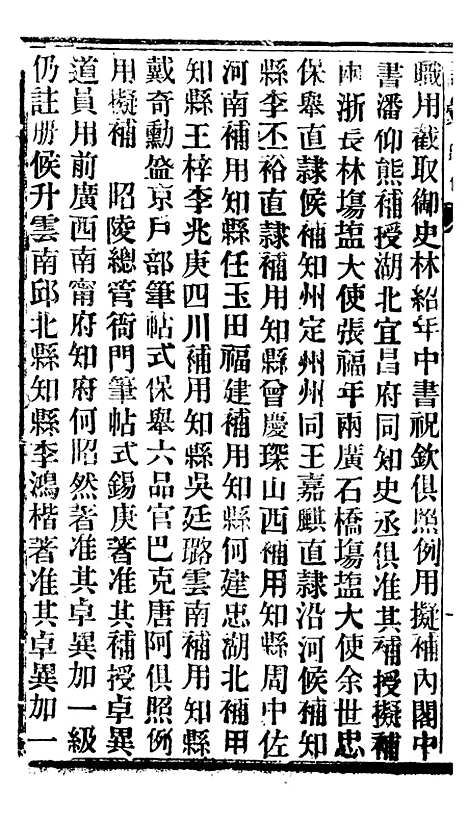 職用截取御史林紹年中書祝欽俱照例用擬補內閣中
書潘仰熊補授湖北宜昌府同知史丞俱准其補授擬補
兩浙長林塲盐大使張福年兩廣石橋塲盐大使余世忠
保舉直隷候補知州定州州同王嘉麒直隷沿河候補知
縣李丕裕直隷補用知縣曾慶琛山西補用知縣周中佐
河南補用知縣任玉田福建補用知縣何建忠湖北補用
知縣王梓李兆庚四川補用知縣吳廷璐雲南補用知縣
戴奇勳盛京戶部筆帖式保舉六品官巴克唐阿俱照例
用擬補　昭陵總管衙門筆帖式錫庚著准其補授卓異
道員用前廣西南甯府知府何昭然著准其卓異加一級
仍註册候升雲南邱北縣知縣李鴻楷著准其卓異加一